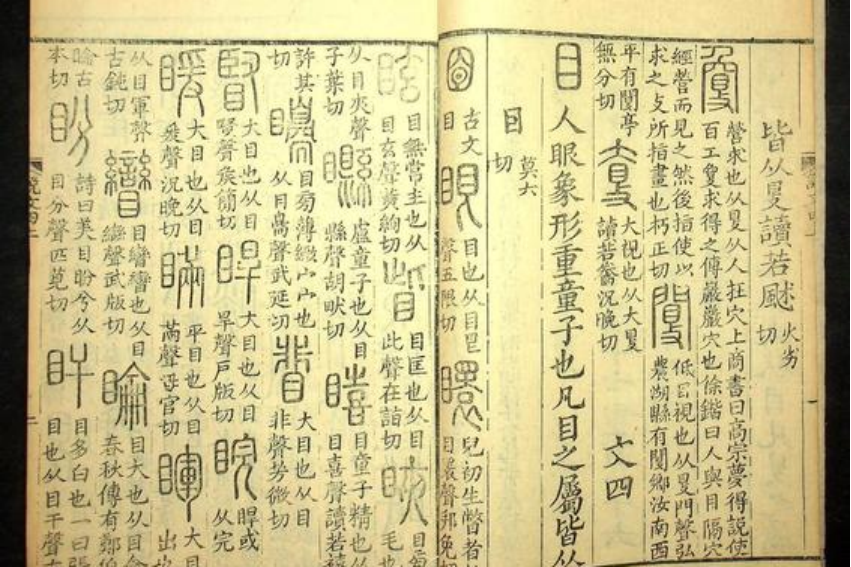 皆从𥄎讀若䫻火劣切
夐營求也从𥄎从人在穴上商書曰高宗夢得說使
百工夐求得之傅巖巖穴也徐鍇曰人與目隔穴
經營而見之然後指使以
求之攴所指畫也朽正切
閺低目視也从𥄎門聲弘
農湖縣有閺鄉汝南西
平有閺亭
無分切
大視也从大𥄎
讀若䓕況晚切
文四
目人眼象形重童子也凡目之屬皆从
目莫六切
古文
目
眼目也从目𥃩
聲五限切
瞏兒初生瞥者
目瞏聲邦免切
眩目無常主也从
目玄聲黃絢切
眥目匡也从目
此聲在詣切
目
毛也
从目夾聲
子葉切
矑童子也从目
縣聲胡畎切
瞦目童子精也从
目喜聲讀若禧
許其
切
目㫄薄緻宀宀也
从目臱聲武延切
大目也从目
非聲芳微切
大目也从目
臤聲侯簡切
睅大目也从目
旱聲戶版切
睆睅或
从完
大目也从目
爰聲況晚切
平目也从目
㒼聲母官切
暉大目
出也
从目軍聲
古鈍切
目矕矕也从目
䜌聲武版切
睔目大也从目侖
春秋傳有鄭伯
睔古
本切
盼詩曰美目盼兮从
目分聲匹莧切
盰目多白也一曰張
目也从目干聲古